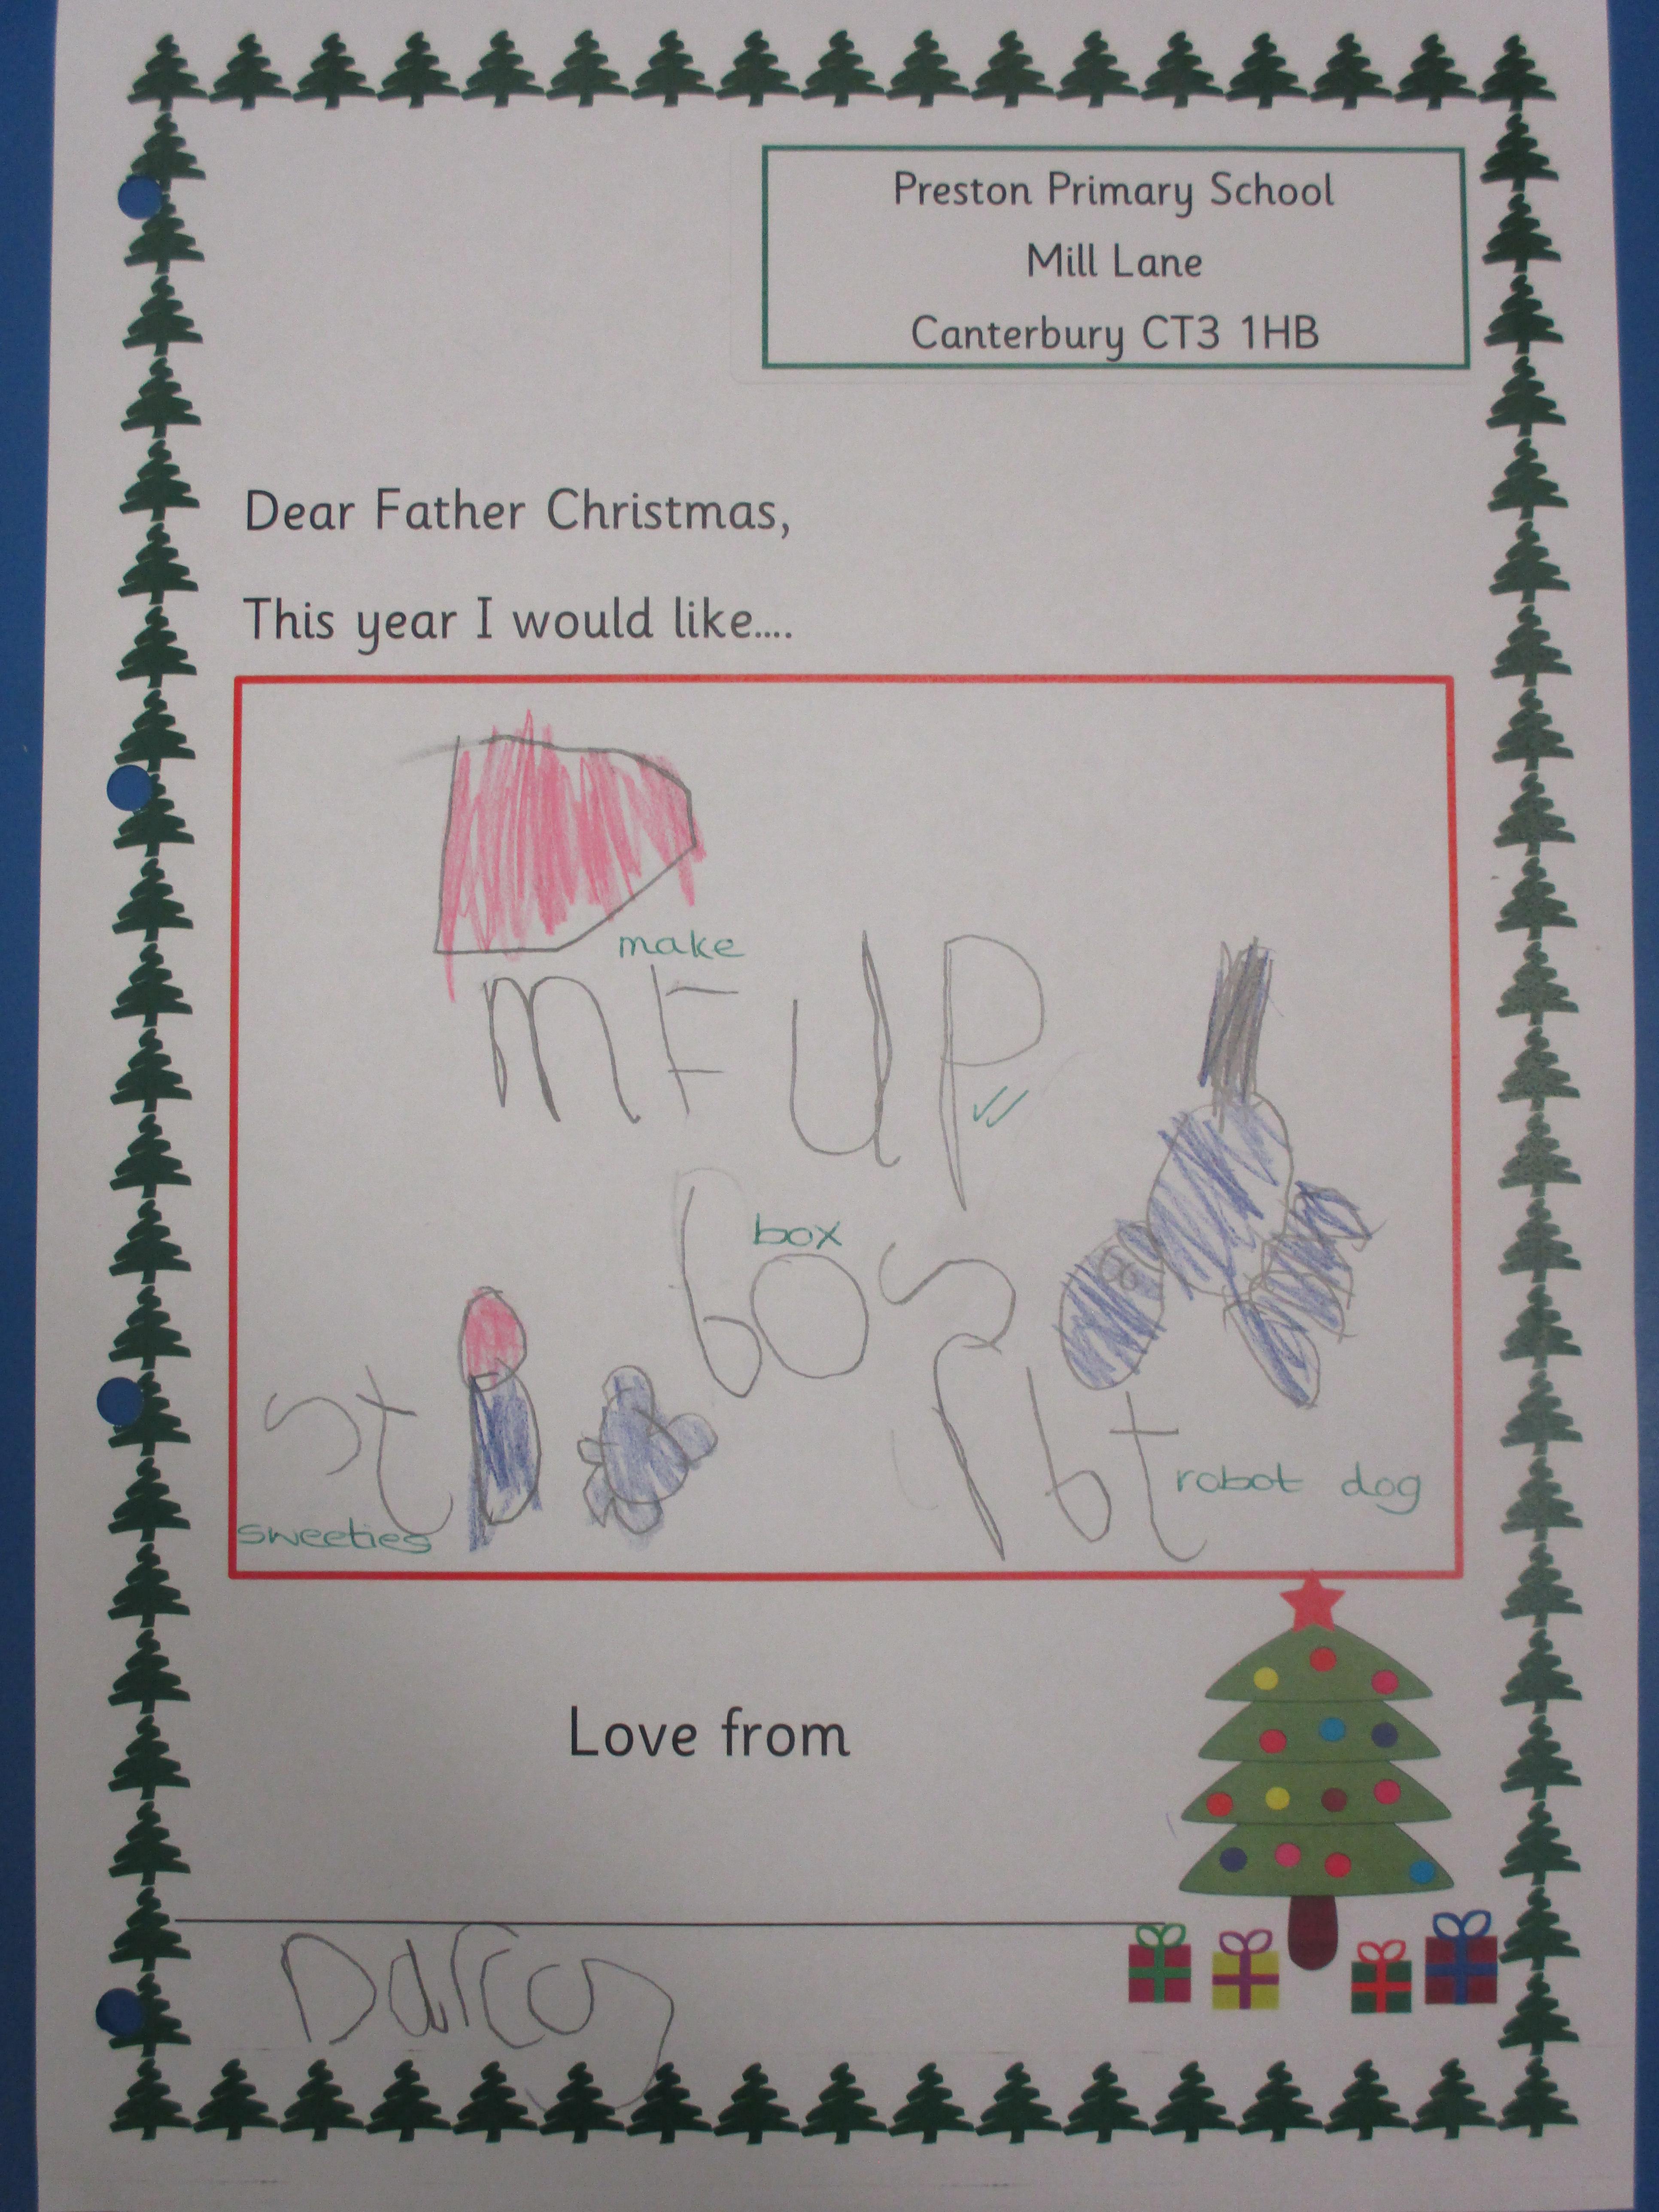 Preston Primary School
Mill Lane
Canterbury CT3 1HB
Dear Father Christmas,
This year I would like....
make
mF UP
box
bos
st
rbt
robot dog
sweeties
Love from
Darcy